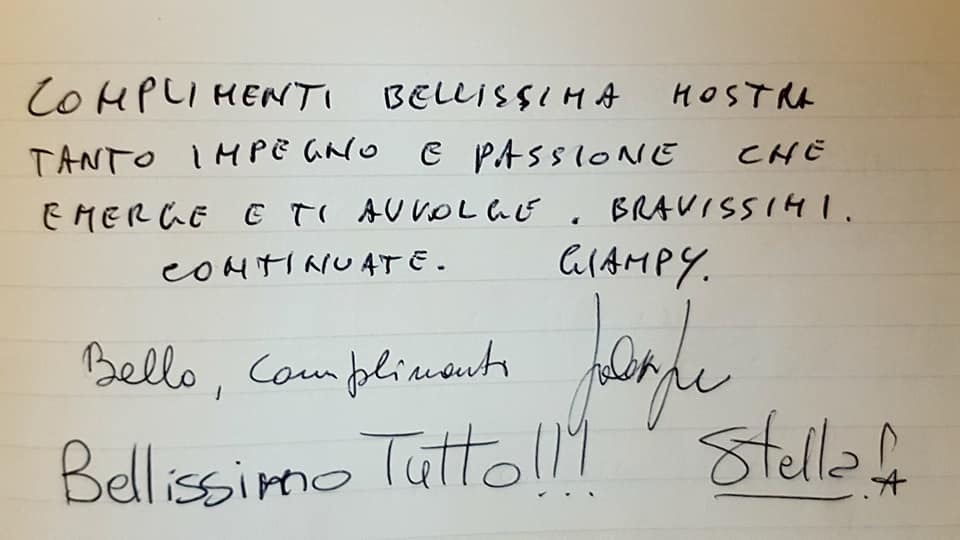 COMPLIMENTI BELLISSIMA MOSTRA
TANTO IMPEGNO E PASSIONE CHE
EMERGE E TI AVVOLGE. BRAVISSIMI.
CONTINUATE. GIAMPY.
Bello, complimenti
Bellissimo Tutto!!! Stella!